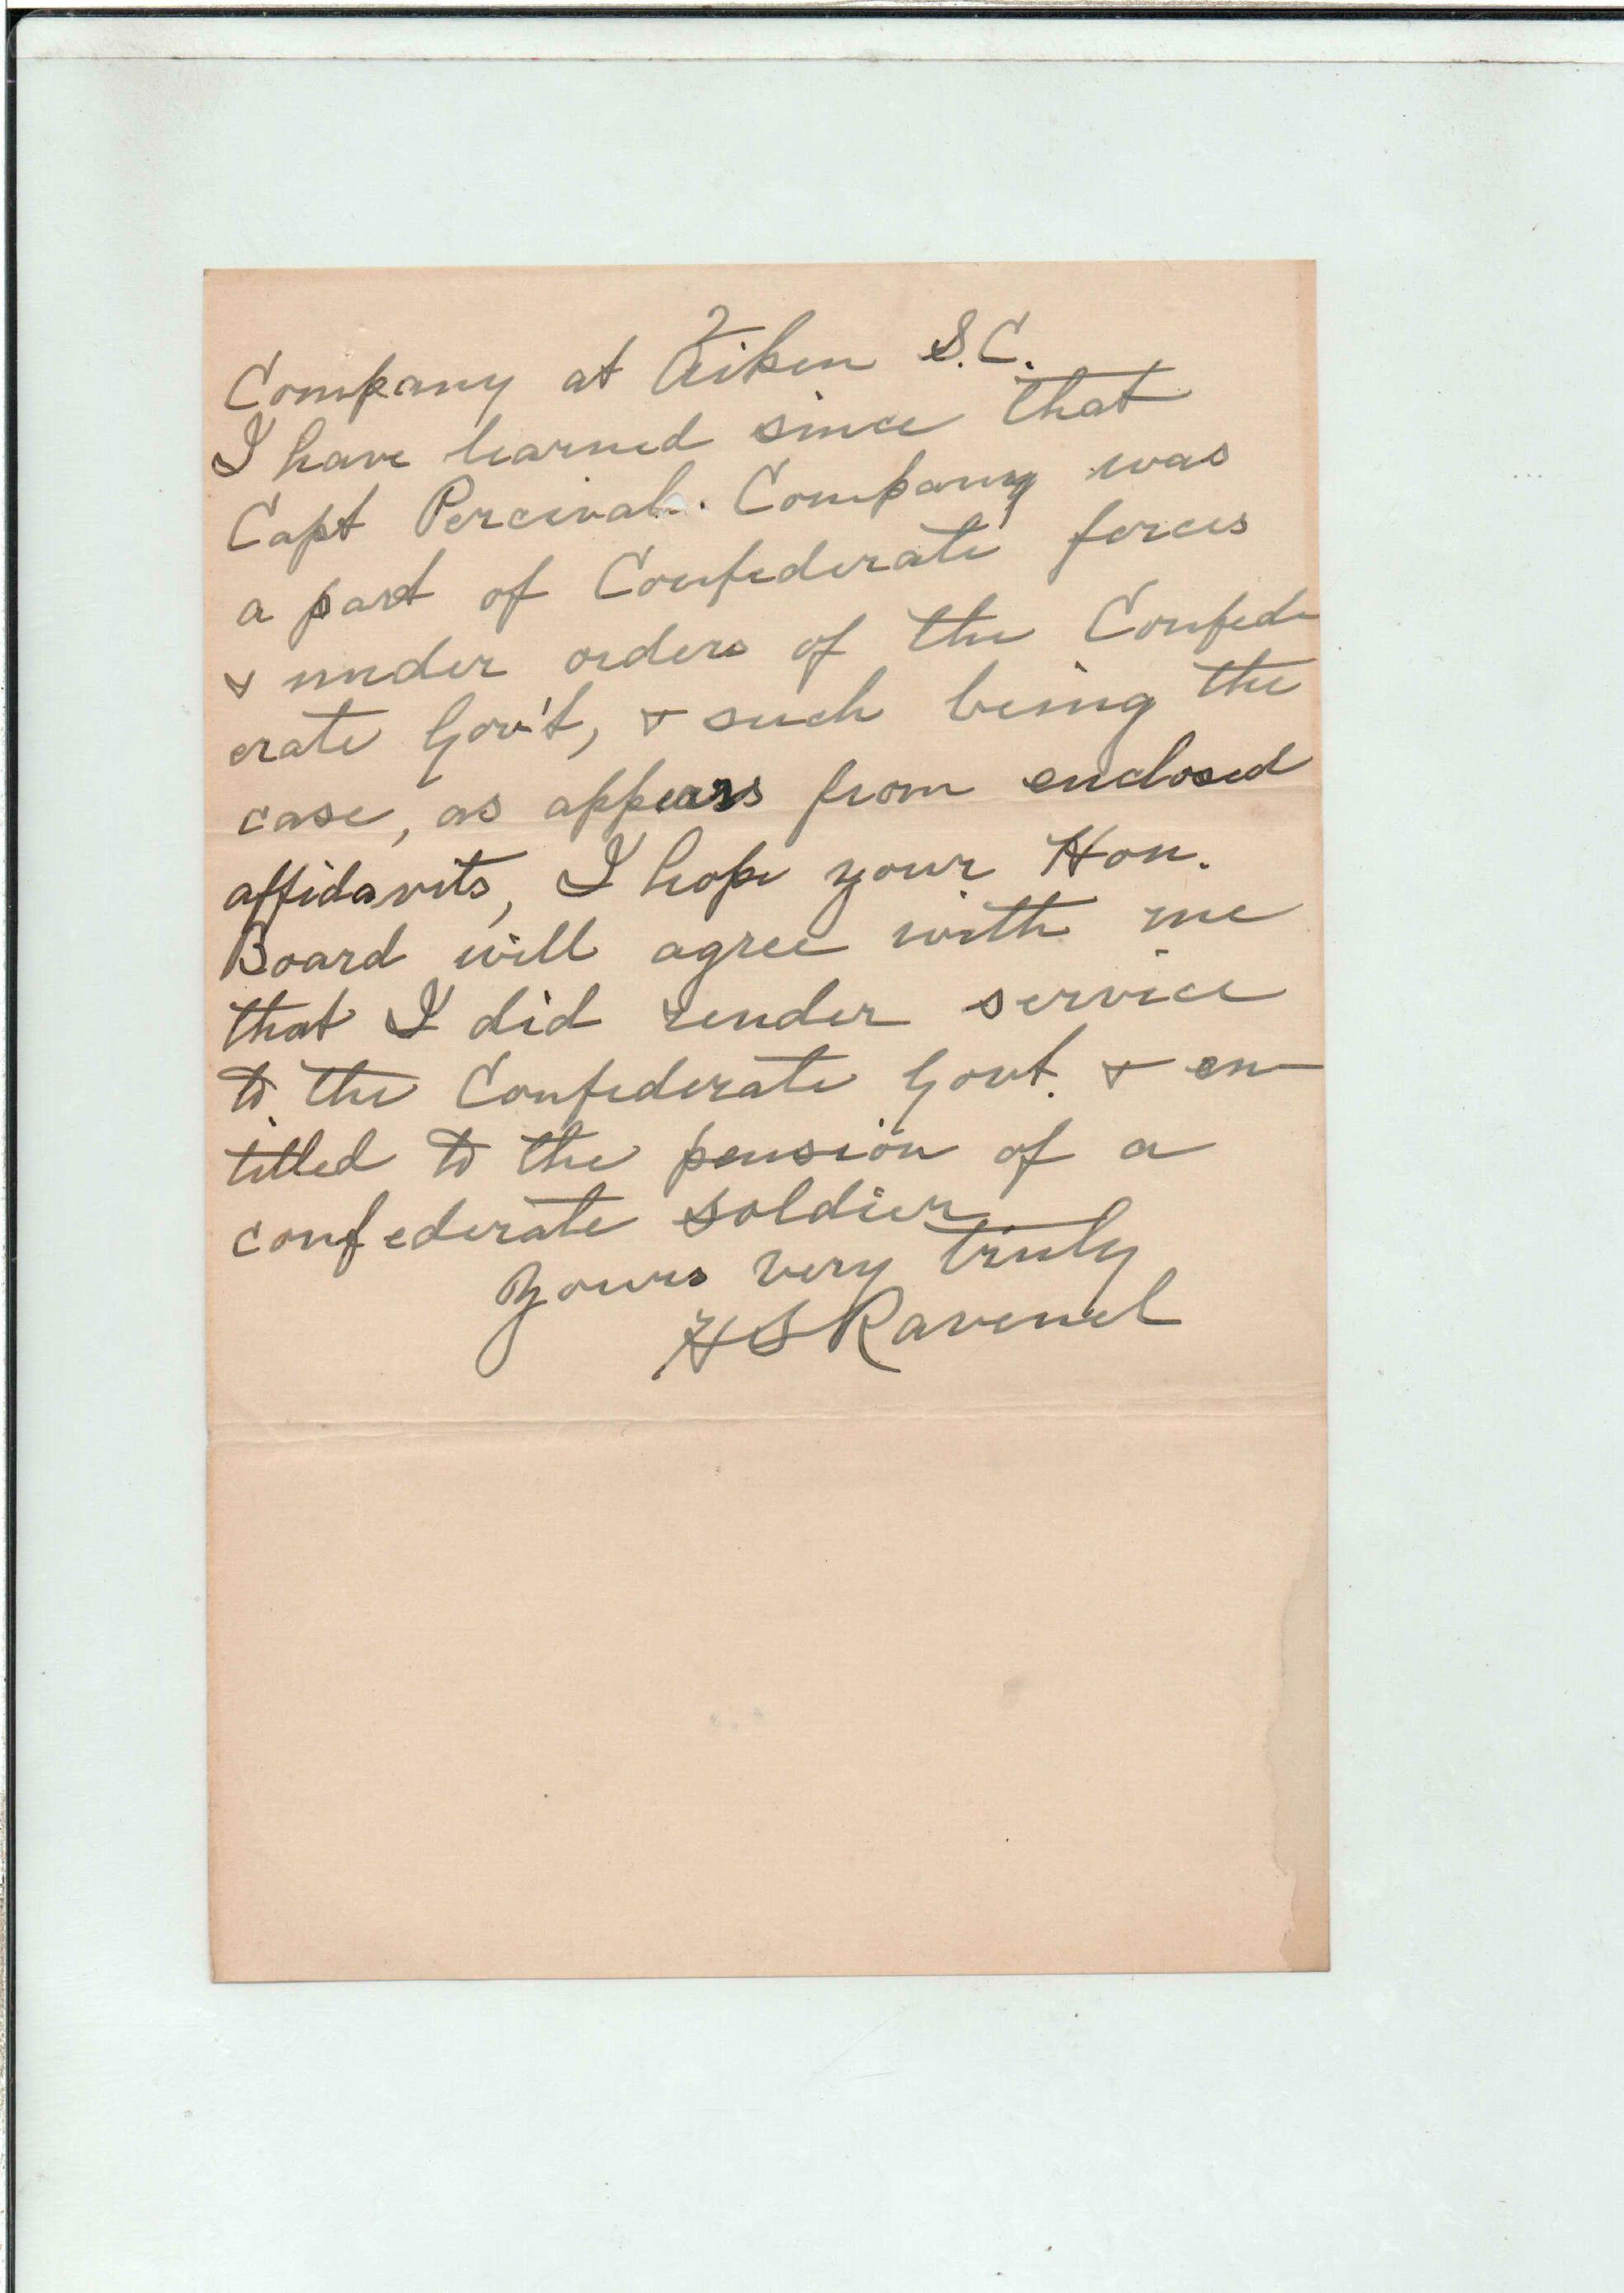 2
Company at Aiken S.C.
I have learned since that
Capt Percival. Company was
a part of Confederate forces
& under orders of the Confed
erate Gov't, & such being the
case, as appears from enclosed
affidavits, I hope your Hon.
Board will agree with me
that I did render service
to the Confederate Govt. & en-
titled to the pension of a
confederate soldier
Yours very truly
H S Ravenel